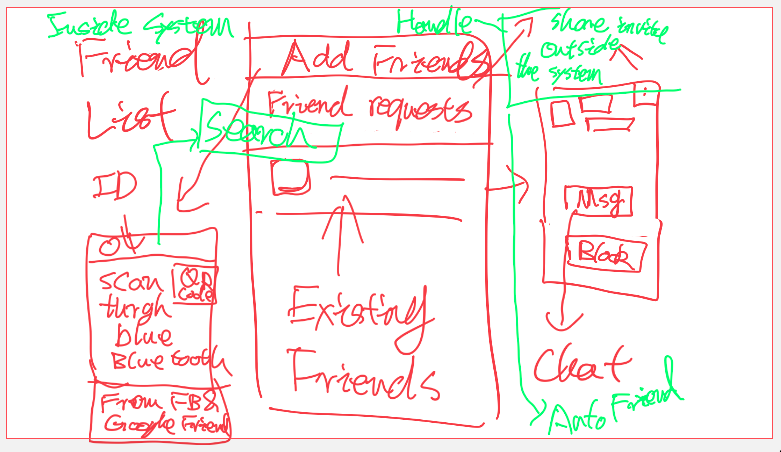 Inside System
Friend
List
ID
Search
scan
QR
code
thurgh
blue
Bluetooth
From FB &
Google Friend
Add Friends
Friend requests
Existing
Friends
Handle
share invite
outside
the system
Msg
Block
Chat
Auto Friend